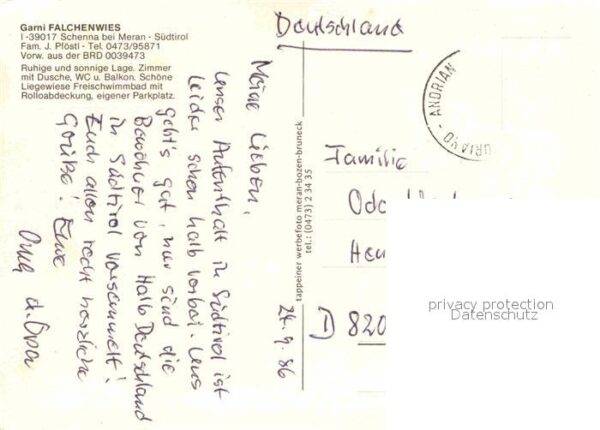 Garni FALCHENWIES
I-39017 Schenna bei Meran - Südtirol
Fam. J. Plöstl - Tel. 0473/95871
Vorw. aus der BRD 0039473
Ruhige und sonnige Lage. Zimmer
mit Dusche, WC u. Balkon. Schöne
Liegewiese Freischwimmbad mit
Rolloabdeckung, eigener Parkplatz.
24.9.86
Meine Lieben,
unser Aufenthalt in Südtirol ist
leider schon halb vorbei. Uns
geht's gut, nur sind die
Bewohner von Halb Deutschland
in Südtirol versammelt!
Euch allen recht herzliche
Grüße! Eure
Oma u. Opa
tappeiner werbefoto meran-bozen-bruneck
tel.: (0473) 2 34 35
Deutschland
ANDRIANO - ANDRIAN
Familie
D 820
privacy protection
Datenschutz